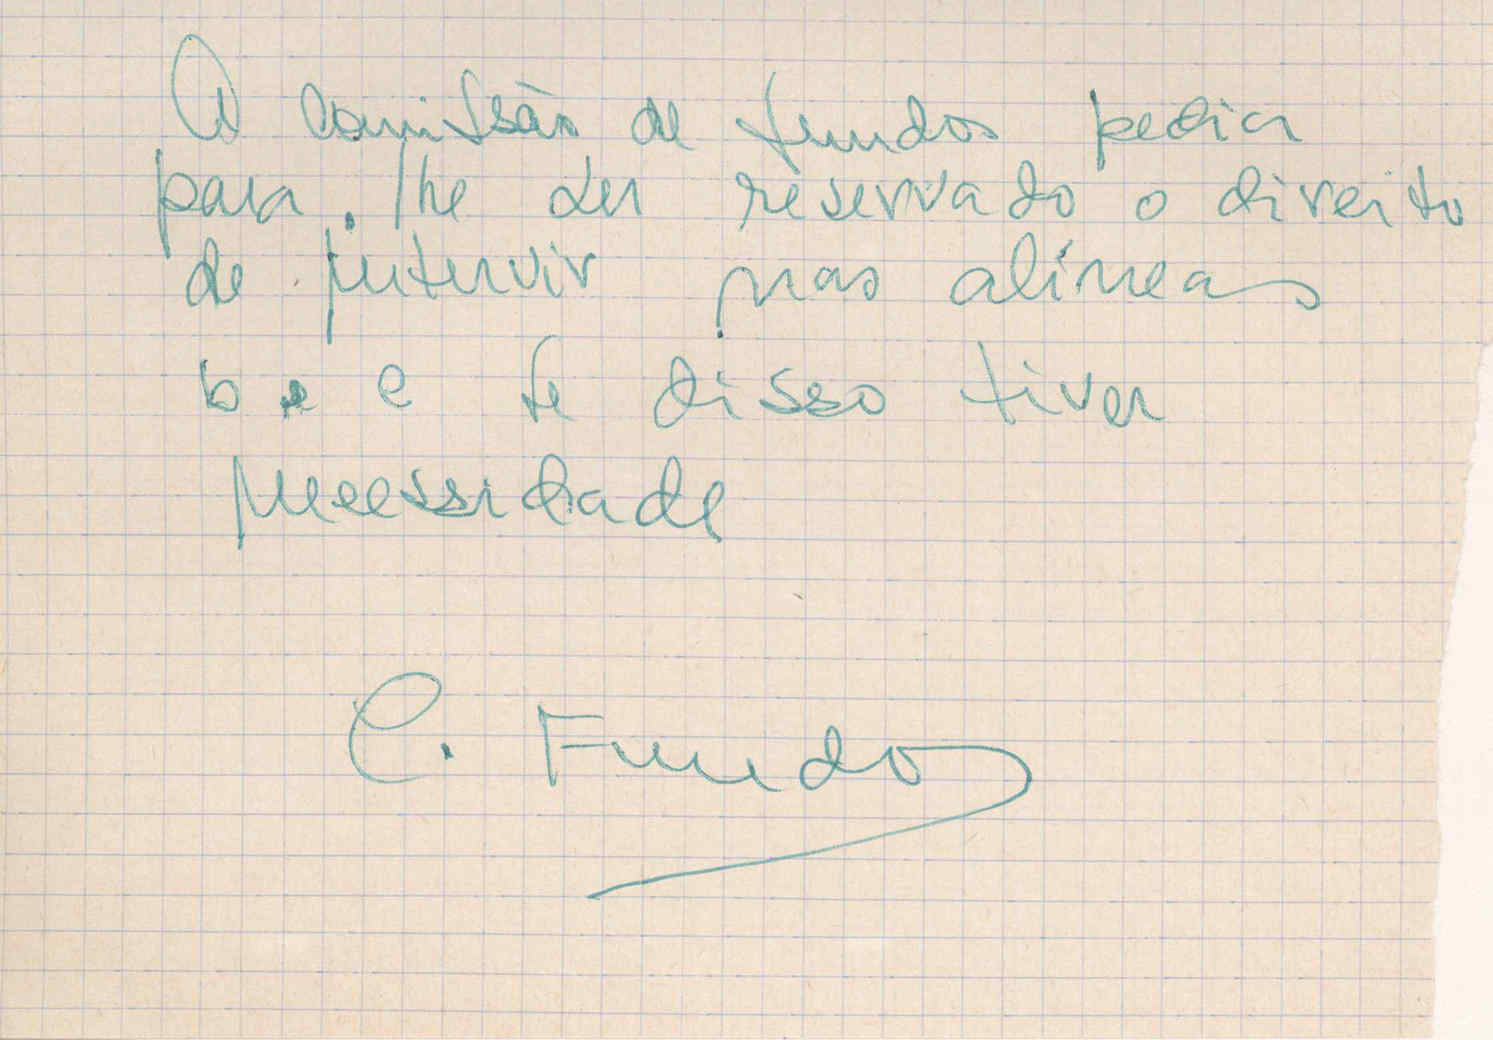 A Comissão de fundos pedia
para lhe ser reservado o direito
de intervir nas alineas
b e e se disso tiver
necessidade
C. Fundos